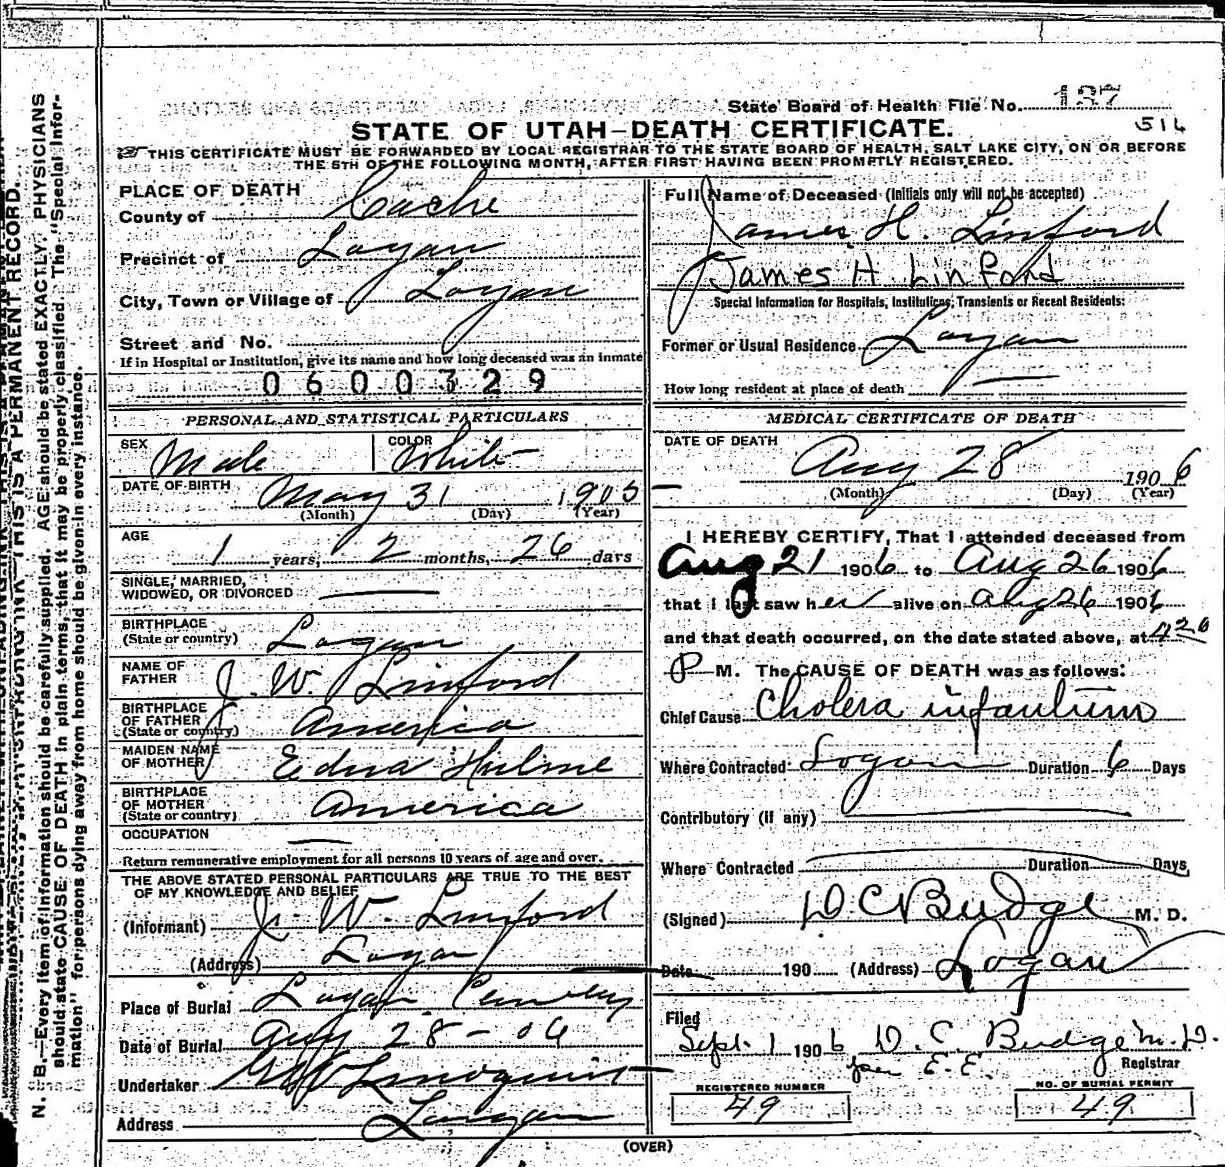 State Board of Health File No. 137
516
STATE OF UTAH—DEATH CERTIFICATE.
THIS CERTIFICATE MUST BE FORWARDED BY LOCAL REGISTRAR TO THE STATE BOARD OF HEALTH, SALT LAKE CITY, ON OR BEFORE
THE 5TH OF THE FOLLOWING MONTH, AFTER FIRST HAVING BEEN PROMPTLY REGISTERED.
PLACE OF DEATH
County of Cache
Precinct of Logan
City, Town or Village of Logan
Street and No.
If in Hospital or Institution, give its name and how long deceased was an inmate
0600329
PERSONAL AND STATISTICAL PARTICULARS
SEX Male COLOR White
DATE OF BIRTH May 31 1905
(Month) (Day) (Year)
AGE 1 years, 2 months, 26 days
SINGLE, MARRIED,
WIDOWED, OR DIVORCED
BIRTHPLACE
(State or country) Logan
NAME OF
FATHER J. W. Linford
BIRTHPLACE
OF FATHER
(State or country) America
MAIDEN NAME
OF MOTHER Edna Hulme
BIRTHPLACE
OF MOTHER
(State or country) America
OCCUPATION
Return remunerative employment for all persons 10 years of age and over.
THE ABOVE STATED PERSONAL PARTICULARS ARE TRUE TO THE BEST
OF MY KNOWLEDGE AND BELIEF
(Informant) J. W. Linford
(Address) Logan
Place of Burial Logan Cemetery
Date of Burial Aug 28-06
Undertaker Lindquist
Address Logan
Full Name of Deceased (Initials only will not be accepted)
James H. Linford
James H Linford
Special Information for Hospitals, Institutions, Transients or Recent Residents:
Former or Usual Residence Logan
How long resident at place of death
MEDICAL CERTIFICATE OF DEATH
DATE OF DEATH
Aug 28 1906
(Month) (Day) (Year)
I HEREBY CERTIFY, That I attended deceased from
Aug 21 1906 to Aug 26 1906
that I last saw her alive on Aug 26 1906
and that death occurred, on the date stated above, at
P M. The CAUSE OF DEATH was as follows:
Chief Cause Cholera infantum
Where Contracted Logan Duration 6 Days
Contributory (if any)
Where Contracted Duration Days
(Signed) D C Budge M. D.
Date 190 (Address) Logan
Filed
Sept. 1 1906 D. C. Budge M.D.
per E. E. Registrar
REGISTERED NUMBER
49
NO. OF BURIAL PERMIT
49
(OVER)
THIS IS A PERMANENT RECORD.
N. B.—Every item of information should be carefully supplied. AGE should be stated EXACTLY. PHYSICIANS
should state CAUSE OF DEATH in plain terms, that it may be properly classified. The "Special Infor-
mation" for persons dying away from home should be given in every instance.